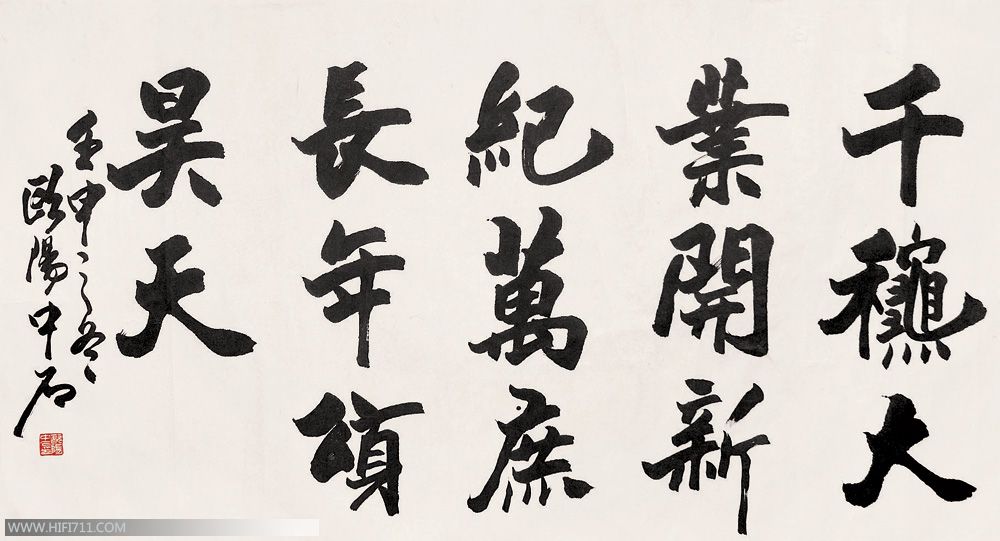 千龝大
業開新
紀萬庶
長年頌
昊天
壬申之冬
歐陽中石
WWW.HIFI711.COM